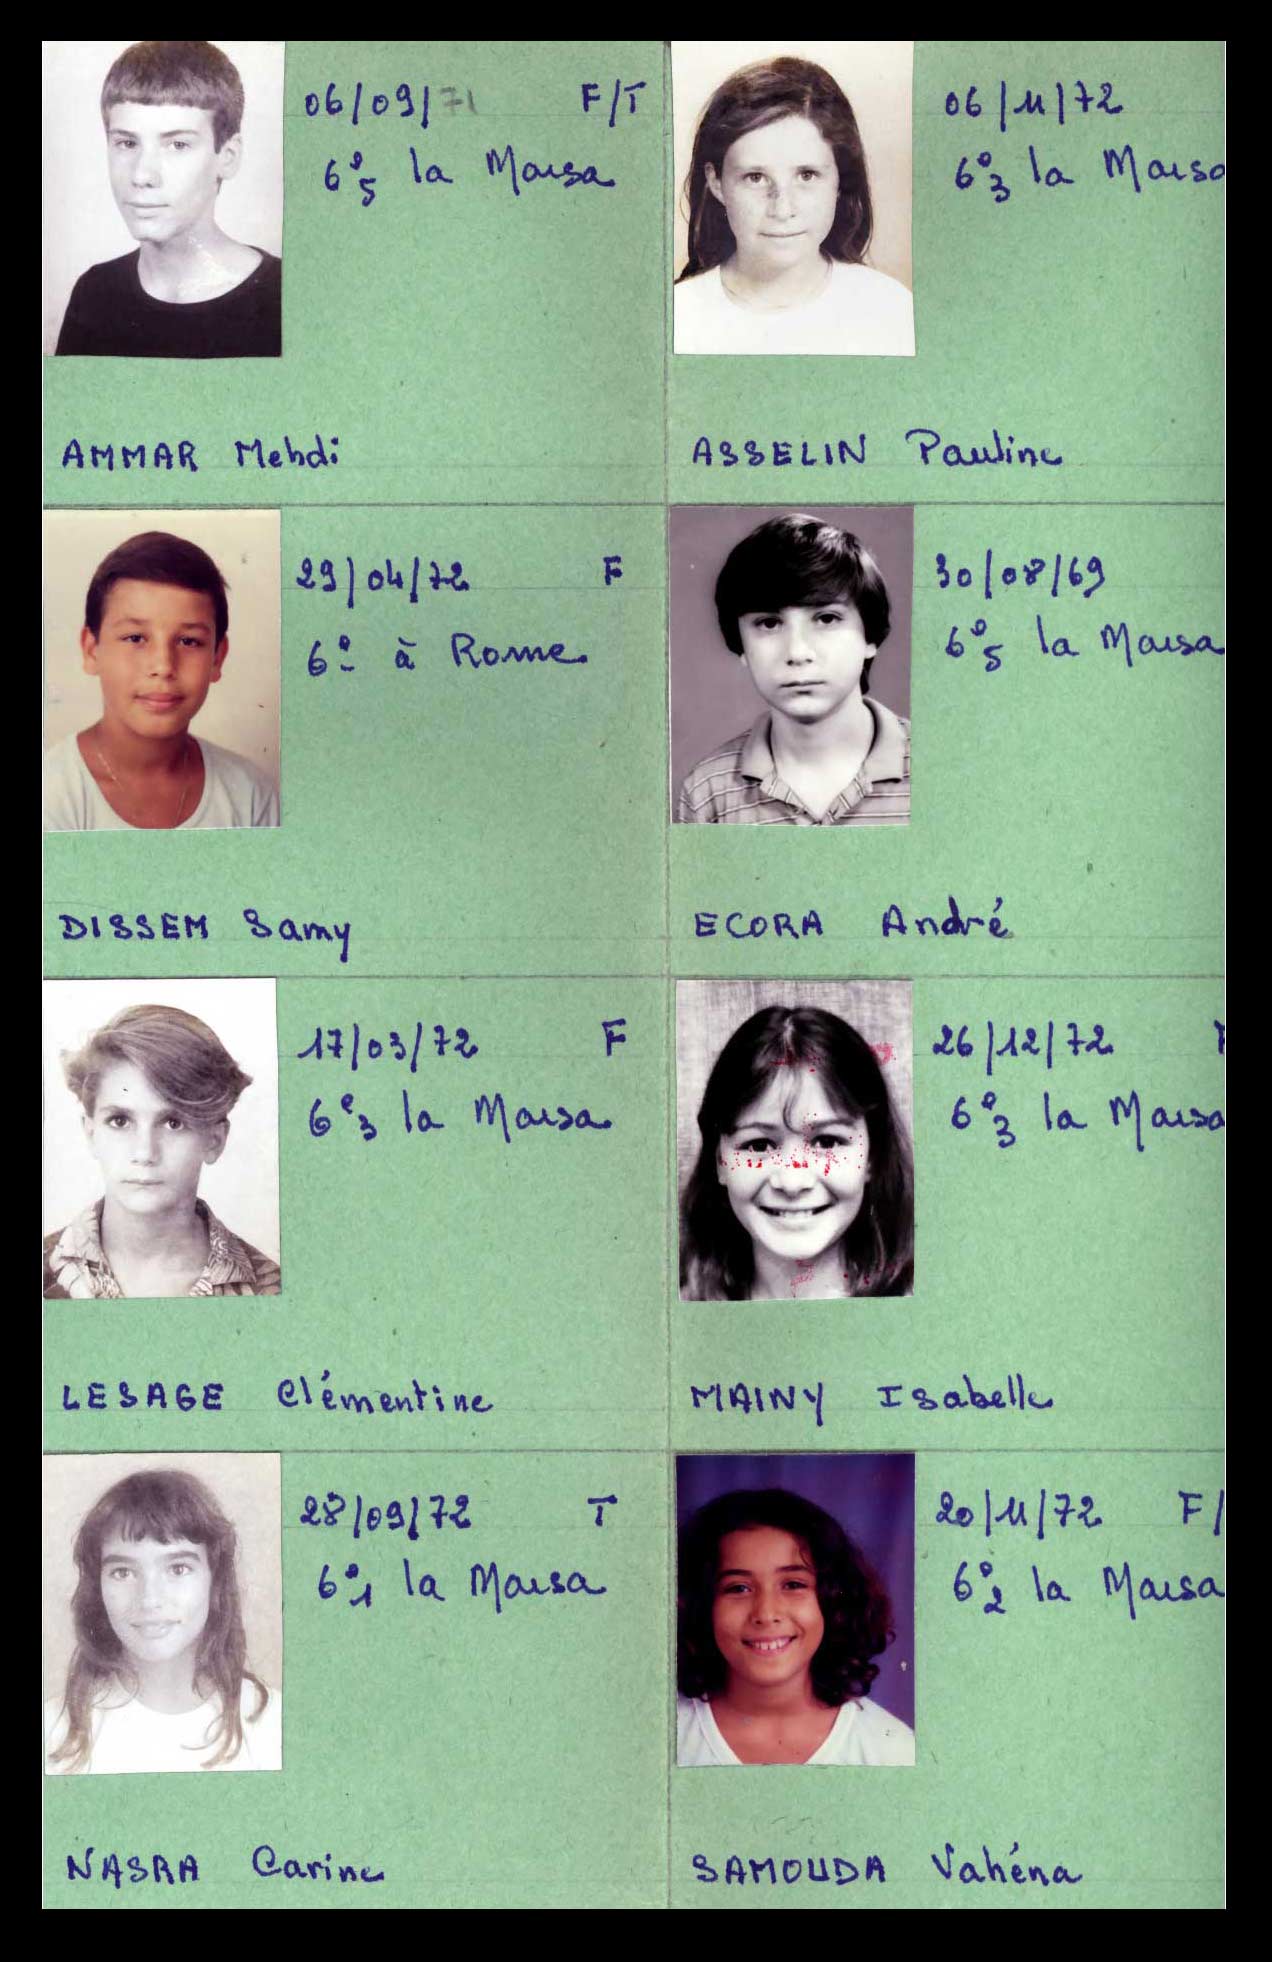 06/09/71 F/T
6e5 la Marsa
AMMAR Mehdi
06/11/72
6e3 la Marsa
ASSELIN Pauline
29/04/72 F
6e à Rome
DISSEM Samy
30/08/69
6e5 la Marsa
ECORA André
17/03/72 F
6e3 la Marsa
LESAGE Clémentine
26/12/72
6e3 la Marsa
MAINY Isabelle
28/09/72 T
6e1 la Marsa
NASRA Carine
20/11/72 F/
6e2 la Marsa
SAMOUDA Vahéna